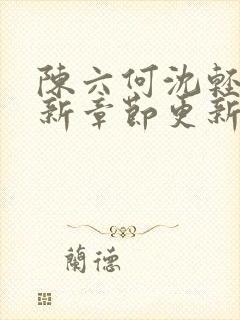 陳六何沈輕
新章節更新
蘭德